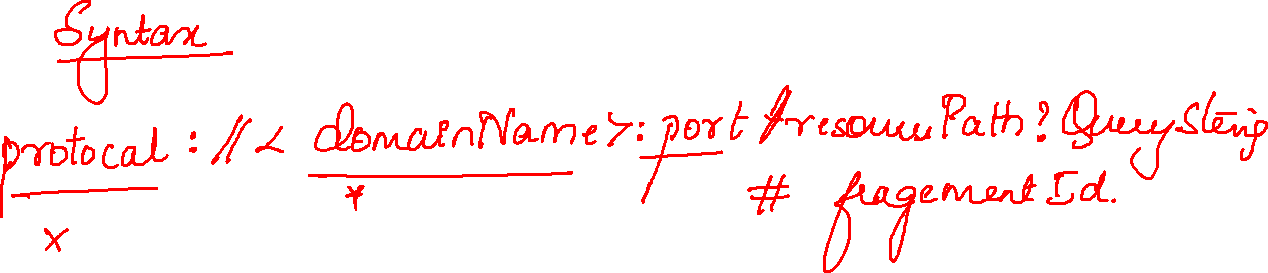 Syntax
protocal : // < domainName > : port /resourcePath ? QueryString
x *
# fragementId.